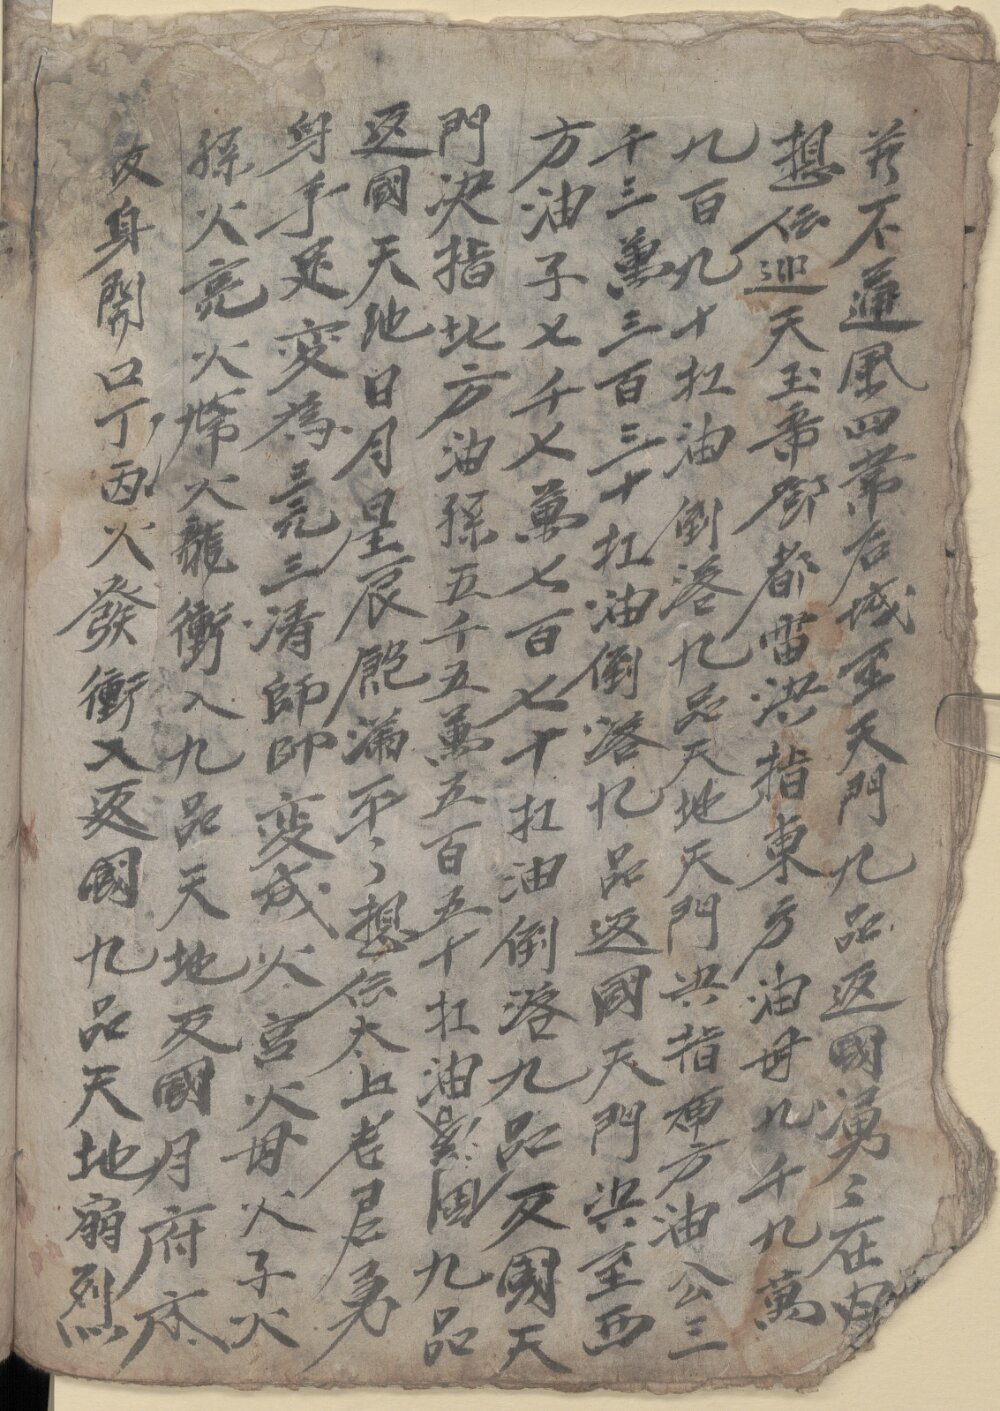 不通風四常右城至天門九品返國湧〻在内
想伝迎天玉帝鄧都雷洪指東方油母九千九萬
九百九十扛油倒落九品天地天門洪指南方油公三
千三萬三百三十扛油倒落九品返國天門洪至西
方油子七千七萬七百七十扛油倒落九品反國天
門決指北方油孫五千五萬五百五十扛油國九品
返國天地日月星辰飽滿不〻想伝太上老君身
身手延变為三清師師变成火宮火母火子火
孫火亮火帶火龍衝入九品天地反國月府
反身開口丁丙火發衝入返國九品天地扇烈